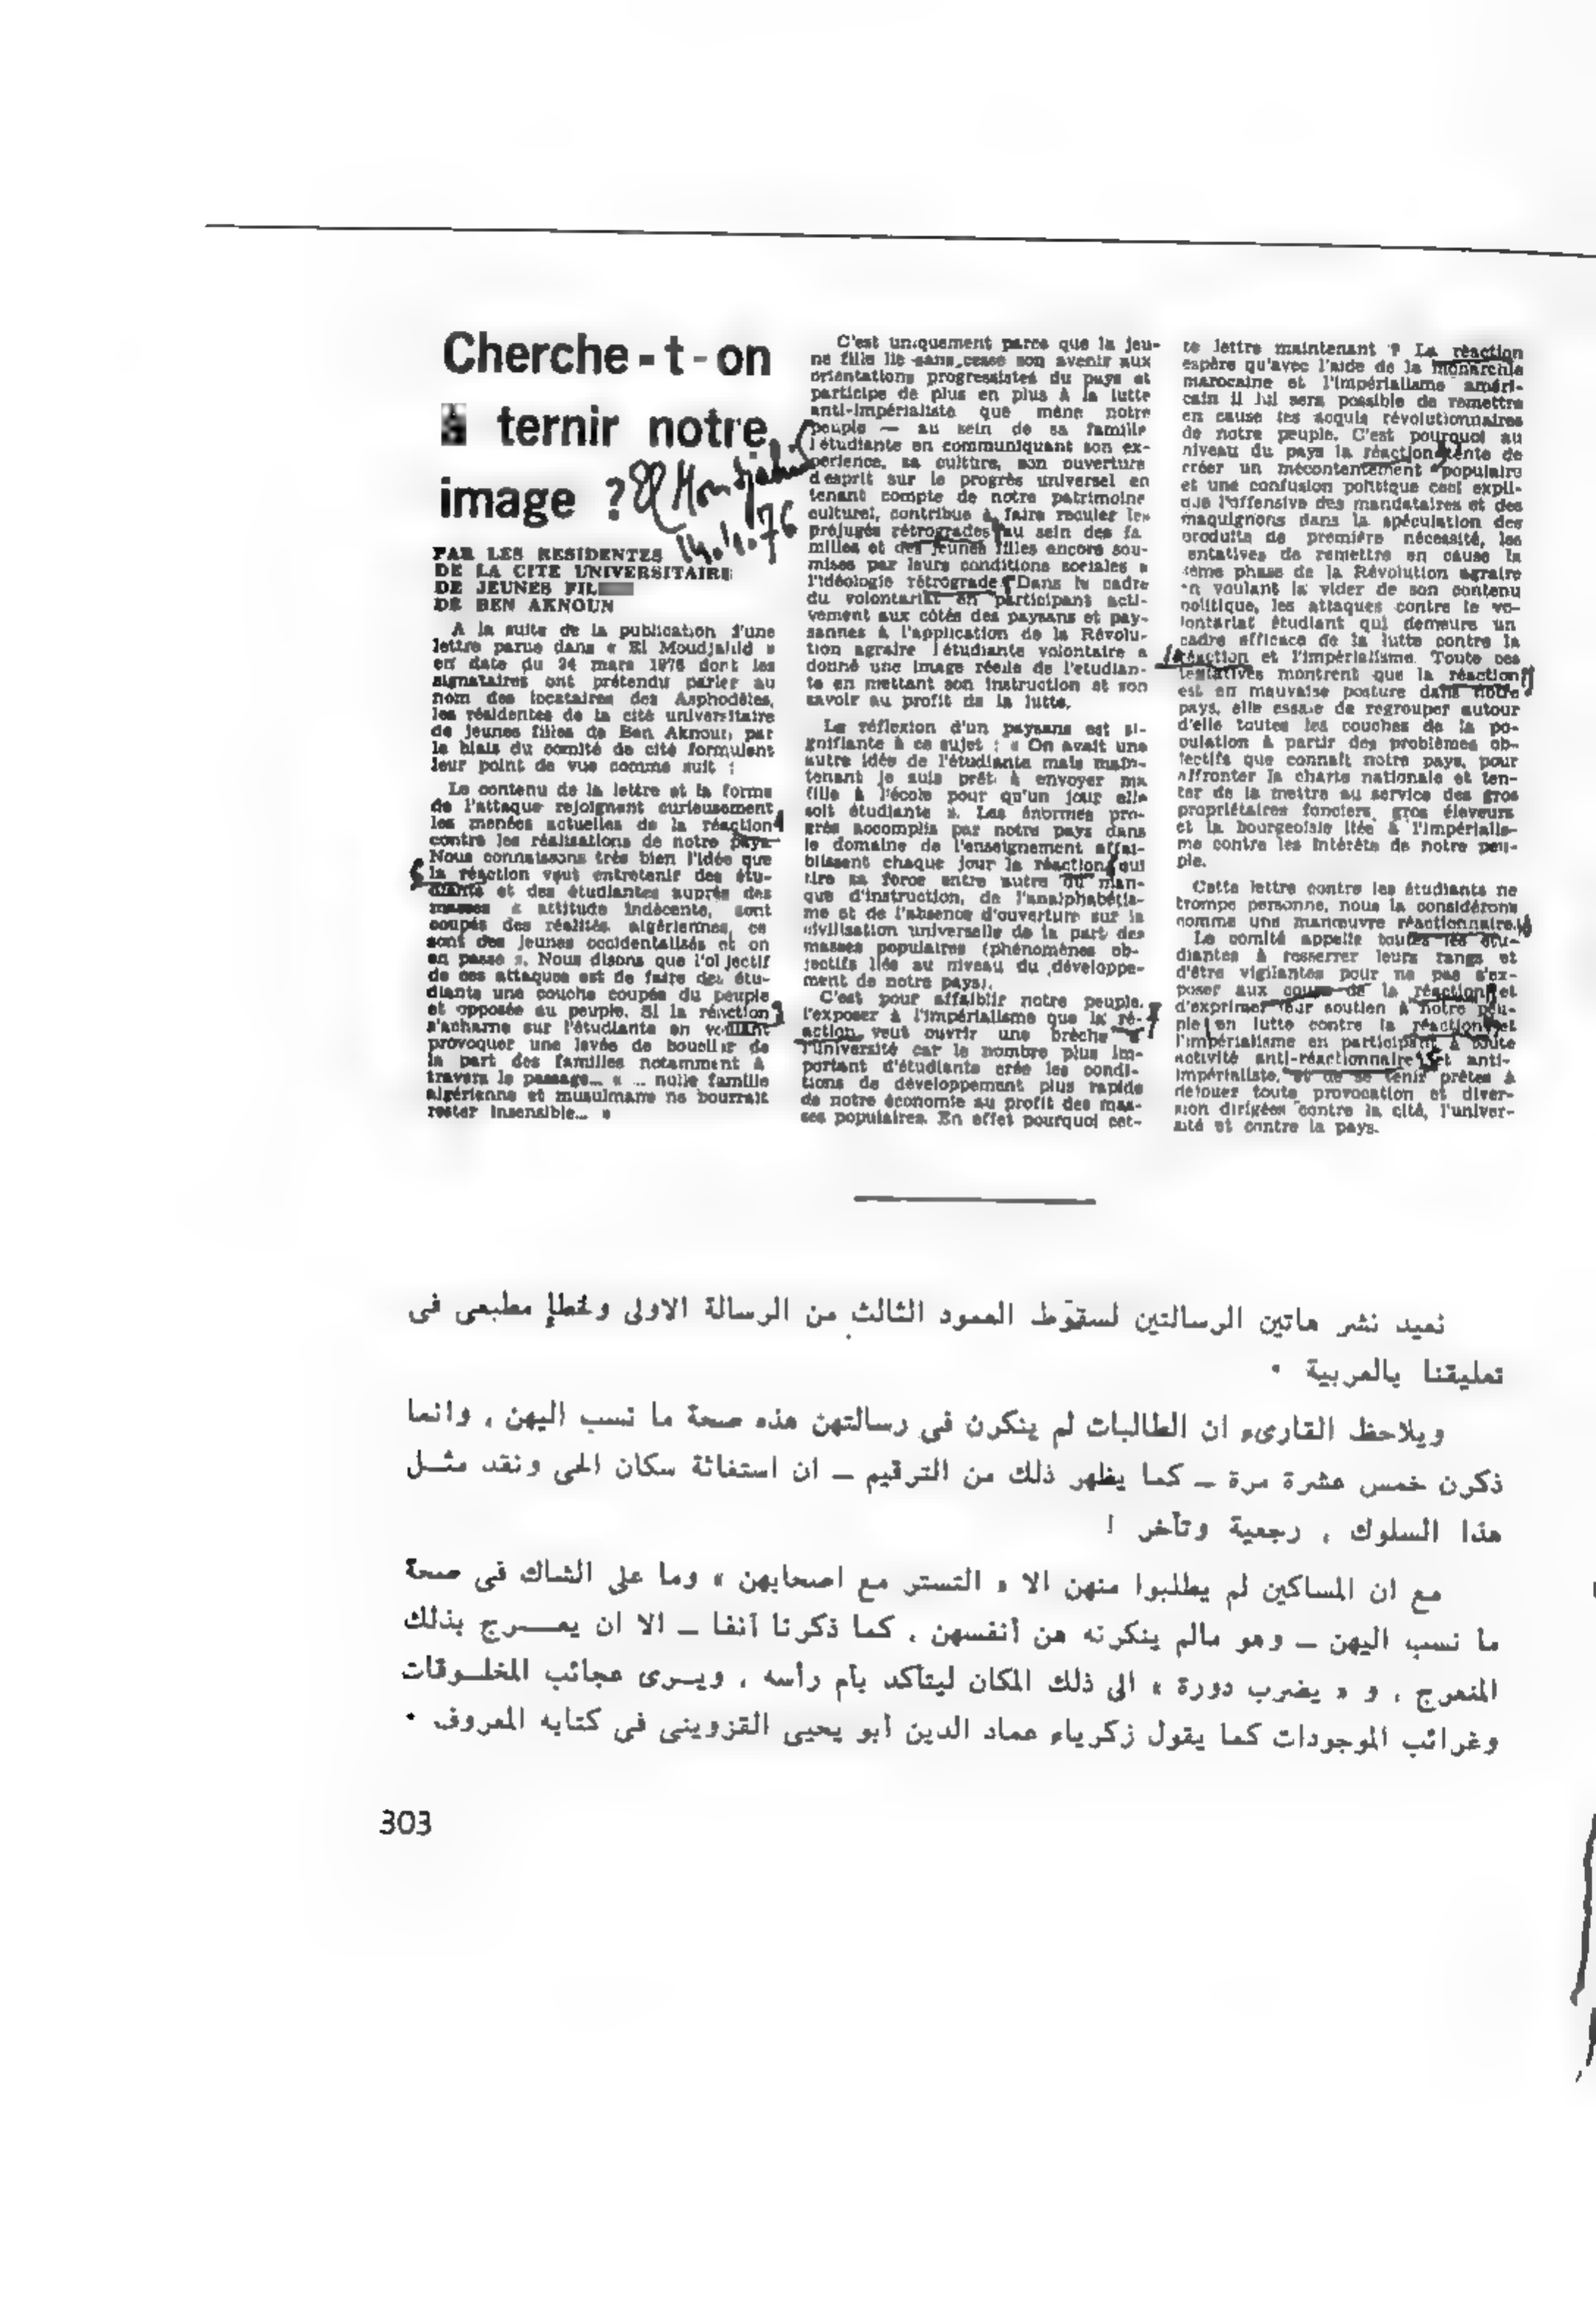 Cherche-t-on
à ternir notre
image ?
El Moudjahid
14.4.76
PAR LES RESIDENTES
DE LA CITE UNIVERSITAIRE
DE JEUNES FIL
DE BEN AKNOUN
A la suite de la publication d'une
lettre parue dans « El Moudjahid »
en date du 24 mars 1976 dont les
signataires ont prétendu parler au
nom des locataires des Asphodèles,
les résidentes de la cité universitaire
de jeunes filles de Ben Aknoun par
le biais du comité de cité formulent
leur point de vue comme suit :
Le contenu de la lettre et la forme
de l'attaque rejoignent curieusement
les menées actuelles de la réaction
contre les réalisations de notre pays.
Nous connaissons très bien l'idée que
la réaction veut entretenir des étu-
diants et des étudiantes auprès des
masses « attitude indécente, sont
coupés des réalités algériennes, ce
sont des jeunes occidentalisés et on
en passe ». Nous disons que l'objectif
de ces attaques est de faire des étu-
diants une couche coupée du peuple
et opposée au peuple. Si la réaction
s'acharne sur l'étudiante en voulant
provoquer une levée de bouclier de
la part des familles notamment à
travers le passage... « ... nulle famille
algérienne et musulmane ne pourrait
rester insensible... »
C'est uniquement parce que la jeu-
ne fille lie sans cesse son avenir aux
orientations progressistes du pays et
participe de plus en plus à la lutte
anti-impérialiste que mène notre
peuple — au sein de sa famille
l'étudiante en communiquant son ex-
périence, sa culture, son ouverture
d'esprit sur le progrès universel en
tenant compte de notre patrimoine
culturel, contribue à faire reculer les
préjugés rétrogrades au sein des fa
milles et des jeunes filles encore sou-
mises par leurs conditions sociales à
l'idéologie rétrograde. Dans le cadre
du volontariat en participant acti-
vement aux côtés des paysans et pay-
sannes à l'application de la Révolu-
tion agraire l'étudiante volontaire a
donné une image réelle de l'étudian-
te en mettant son instruction et son
savoir au profit de la lutte.
La réflexion d'un paysans est si-
gnifiante à ce sujet : « On avait une
autre idée de l'étudiante mais main-
tenant je suis prêt à envoyer ma
fille à l'école pour qu'un jour elle
soit étudiante ». Les énormes pro-
grès accomplis par notre pays dans
le domaine de l'enseignement affai-
blissent chaque jour la réaction qui
tire sa force entre autre du man-
que d'instruction, de l'analphabétis-
me et de l'absence d'ouverture sur la
civilisation universelle de la part des
masses populaires (phénomènes ob-
jectifs liés au niveau du développe-
ment de notre pays).
C'est pour affaiblir notre peuple,
l'exposer à l'impérialisme que la ré-
action veut ouvrir une brèche à
l'université car le nombre plus im-
portant d'étudiants crée les condi-
tions de développement plus rapide
de notre économie au profit des mas-
ses populaires. En effet pourquoi cet-
te lettre maintenant ? La réaction
espère qu'avec l'aide de la monarchie
marocaine et l'impérialisme améri-
cain il lui sera possible de remettre
en cause les acquis révolutionnaires
de notre peuple. C'est pourquoi au
niveau du pays la réaction tente de
créer un mécontentement populaire
et une confusion politique ceci expli-
que l'offensive des mandataires et des
maquignons dans la spéculation des
produits de première nécessité, les
tentatives de remettre en cause la
ème phase de la Révolution agraire
en voulant la vider de son contenu
politique, les attaques contre le vo-
lontariat étudiant qui demeure un
cadre efficace de la lutte contre la
réaction et l'impérialisme. Toute ces
tentatives montrent que la réaction
est en mauvaise posture dans notre
pays, elle essaie de regrouper autour
d'elle toutes les couches de la po-
pulation à partir des problèmes ob-
jectifs que connaît notre pays, pour
affronter la charte nationale et ten-
ter de la mettre au service des gros
propriétaires fonciers, gros éleveurs
et la bourgeoisie liée à l'impérialis-
me contre les intérêts de notre peu-
ple.
Cette lettre contre les étudiants ne
trompe personne, nous la considérons
comme une manœuvre réactionnaire.
Le comité appelle toutes les étu-
diantes à resserrer leurs rangs et
d'être vigilantes pour ne pas s'ex-
poser aux coups de la réaction et
d'exprimer leur soutien à notre peu-
ple en lutte contre la réaction et
l'impérialisme en participant à toute
activité anti-réactionnaire et anti-
impérialiste, et de se tenir prêtes à
déjouer toute provocation et diver-
sion dirigées contre la cité, l'univer-
sité et contre la pays.
نعيد نشر هاتين الرسالتين لسقوط العمود الثالث من الرسالة الاولى ولخطإ مطبعى فى
تعليقنا بالعربية .
ويلاحظ القارىء ان الطالبات لم ينكرن فى رسالتهن هذه صحة ما نسب اليهن ، وانما
ذكرن خمس عشرة مرة – كما يظهر ذلك من الترقيم – ان استغاثة سكان الحى ونقد مثــل
هذا السلوك ، رجعية وتأخر !
مع ان المساكين لم يطلبوا منهن الا « التستر مع اصحابهن » وما على الشاك فى صحة
ما نسب اليهن – وهو مالم ينكرنه هن أنفسهن ، كما ذكرنا آنفا – الا ان يعــرج بذلك
المنعرج ، و « يضرب دورة » الى ذلك المكان ليتأكد بأم رأسه ، ويــرى عجائب المخلــوقات
وغرائب الموجودات كما يقول زكرياء عماد الدين أبو يحيى القزوينى فى كتابه المعروف .
303